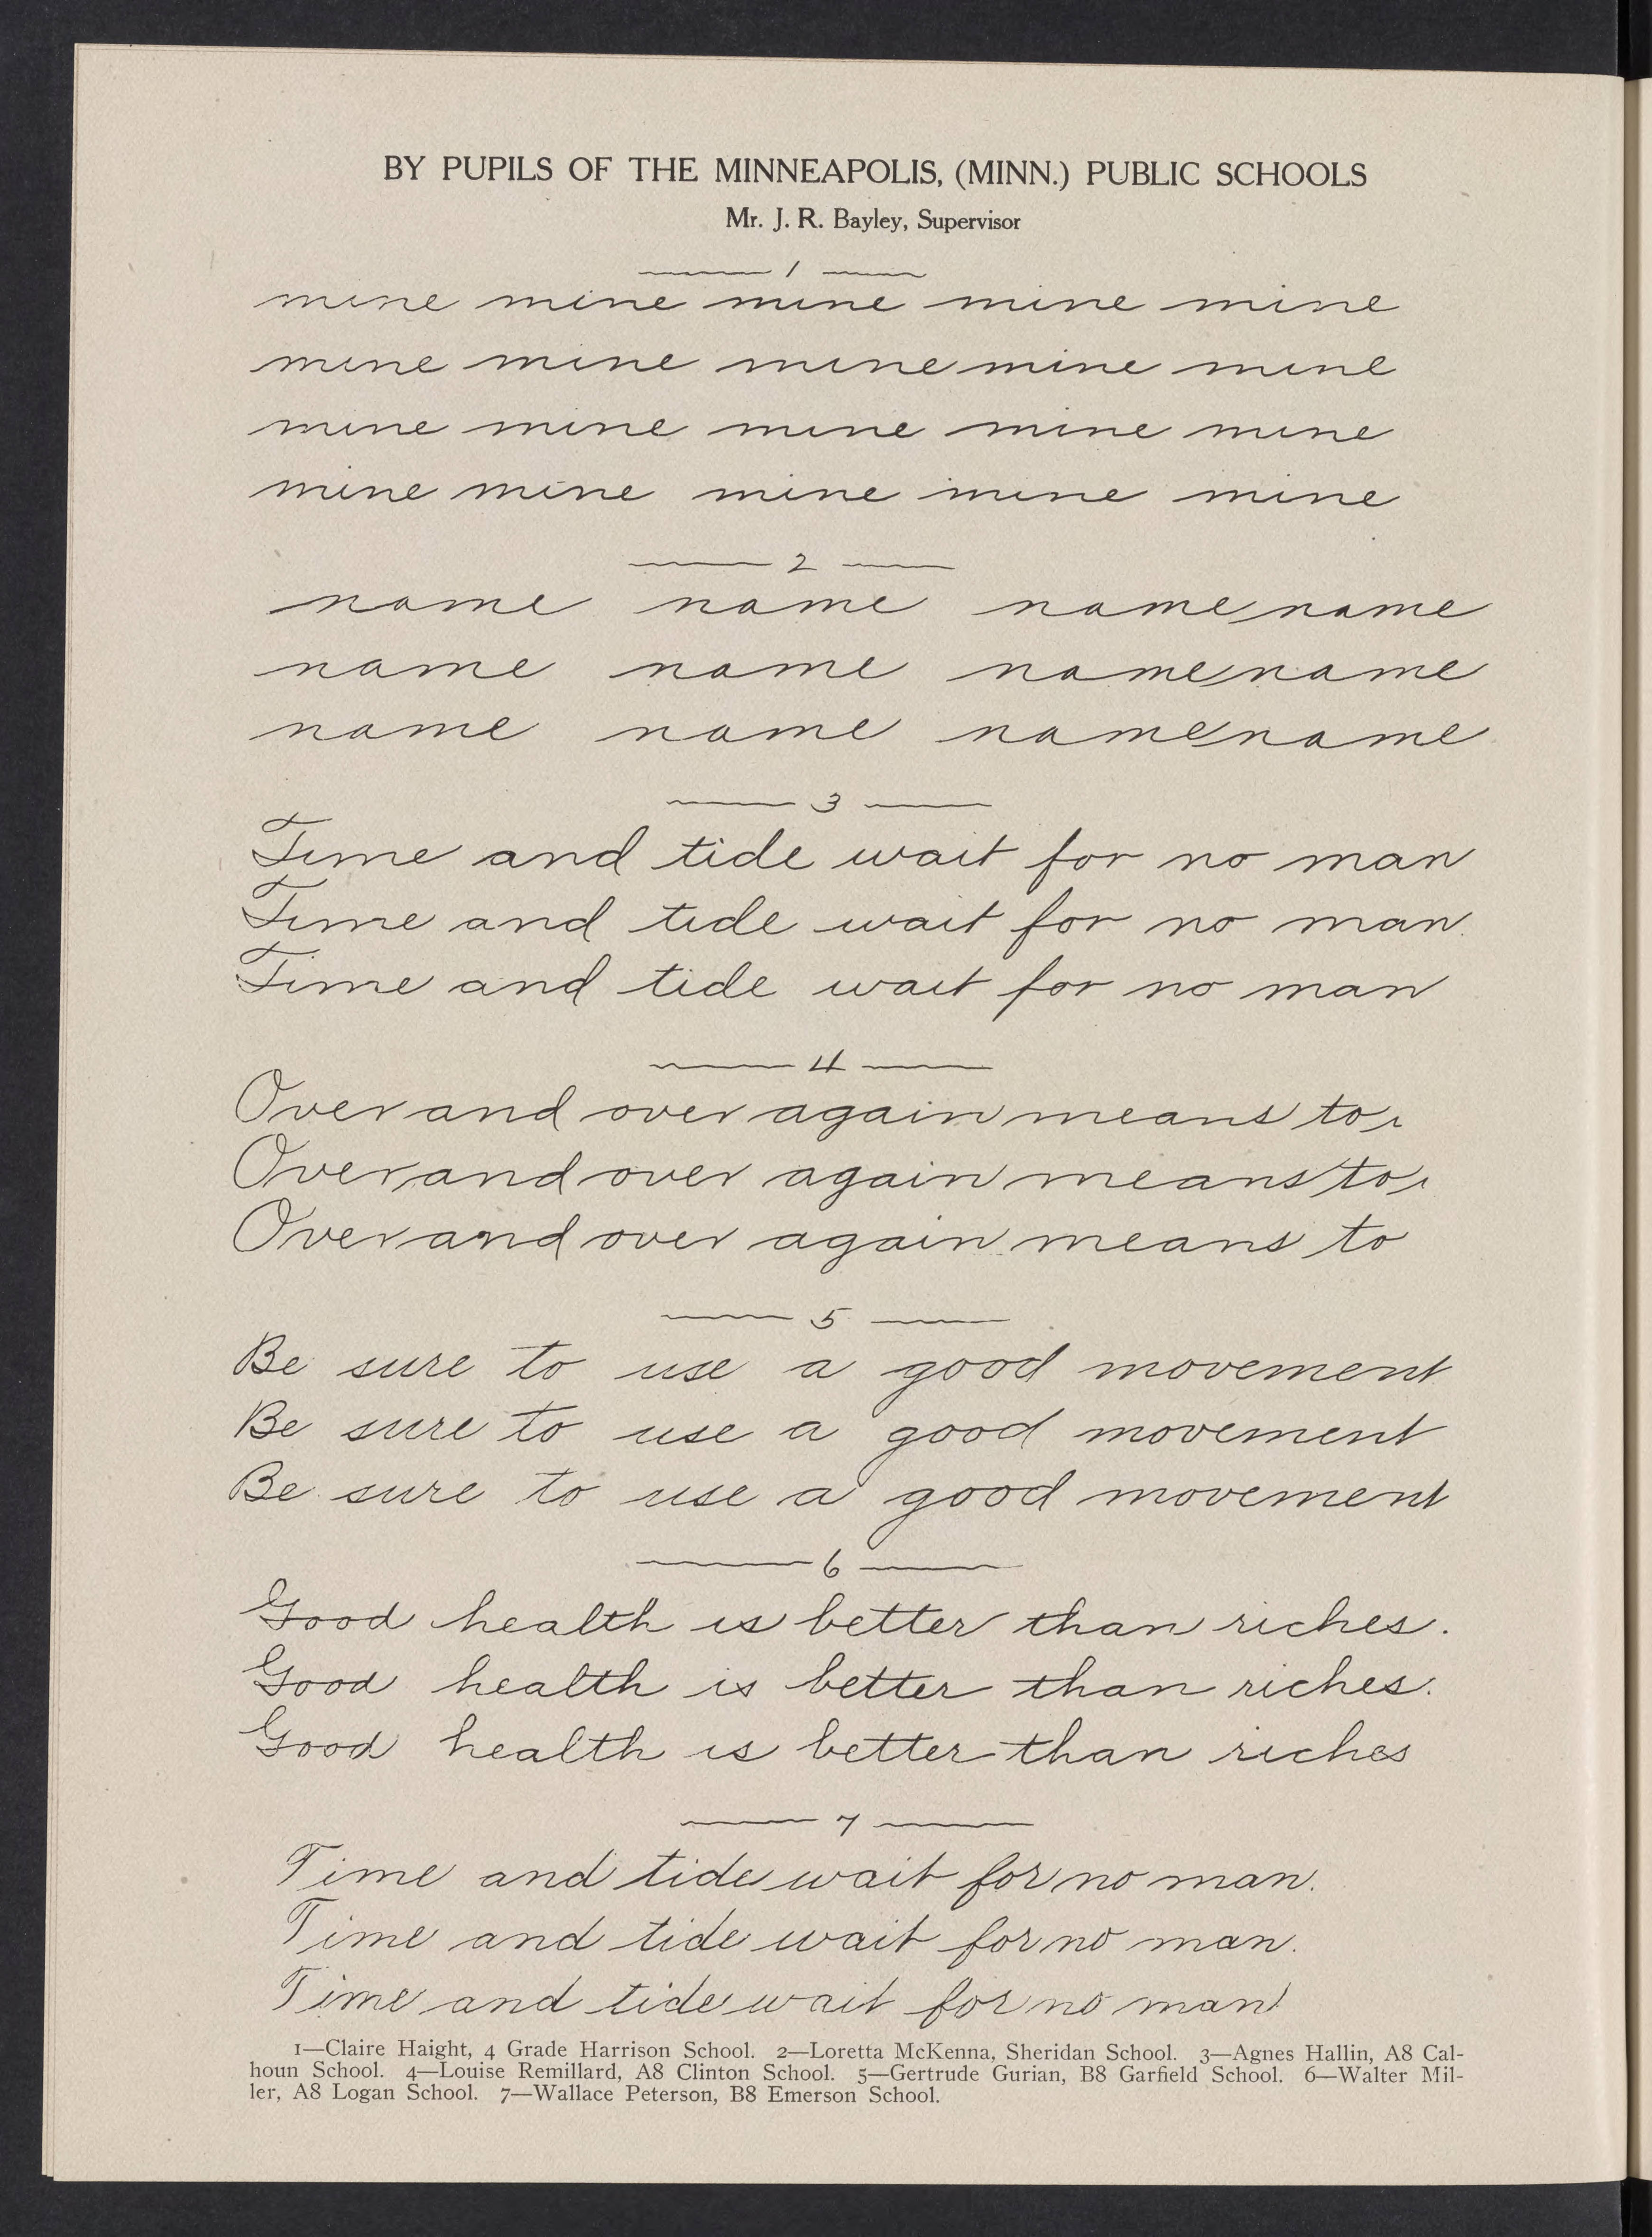 BY PUPILS OF THE MINNEAPOLIS, (MINN.) PUBLIC SCHOOLS
Mr. J. R. Bayley, Supervisor
1
mine mine mine mine mine
mine mine mine mine mine
mine mine mine mine mine
mine mine mine mine mine
2
name name name name
name name name name
name name name name
3
Time and tide wait for no man
Time and tide wait for no man.
Time and tide wait for no man
4
Over and over again means to
Over and over again means to
Over and over again means to
5
Be sure to use a good movement
Be sure to use a good movement
Be sure to use a good movement
6
Good health is better than riches.
Good health is better than riches.
Good health is better than riches
7
Time and tide wait for no man.
Time and tide wait for no man.
Time and tide wait for no man
1—Claire Haight, 4 Grade Harrison School. 2—Loretta McKenna, Sheridan School. 3—Agnes Hallin, A8 Cal-
houn School. 4—Louise Remillard, A8 Clinton School. 5—Gertrude Gurian, B8 Garfield School. 6—Walter Mil-
ler, A8 Logan School. 7—Wallace Peterson, B8 Emerson School.